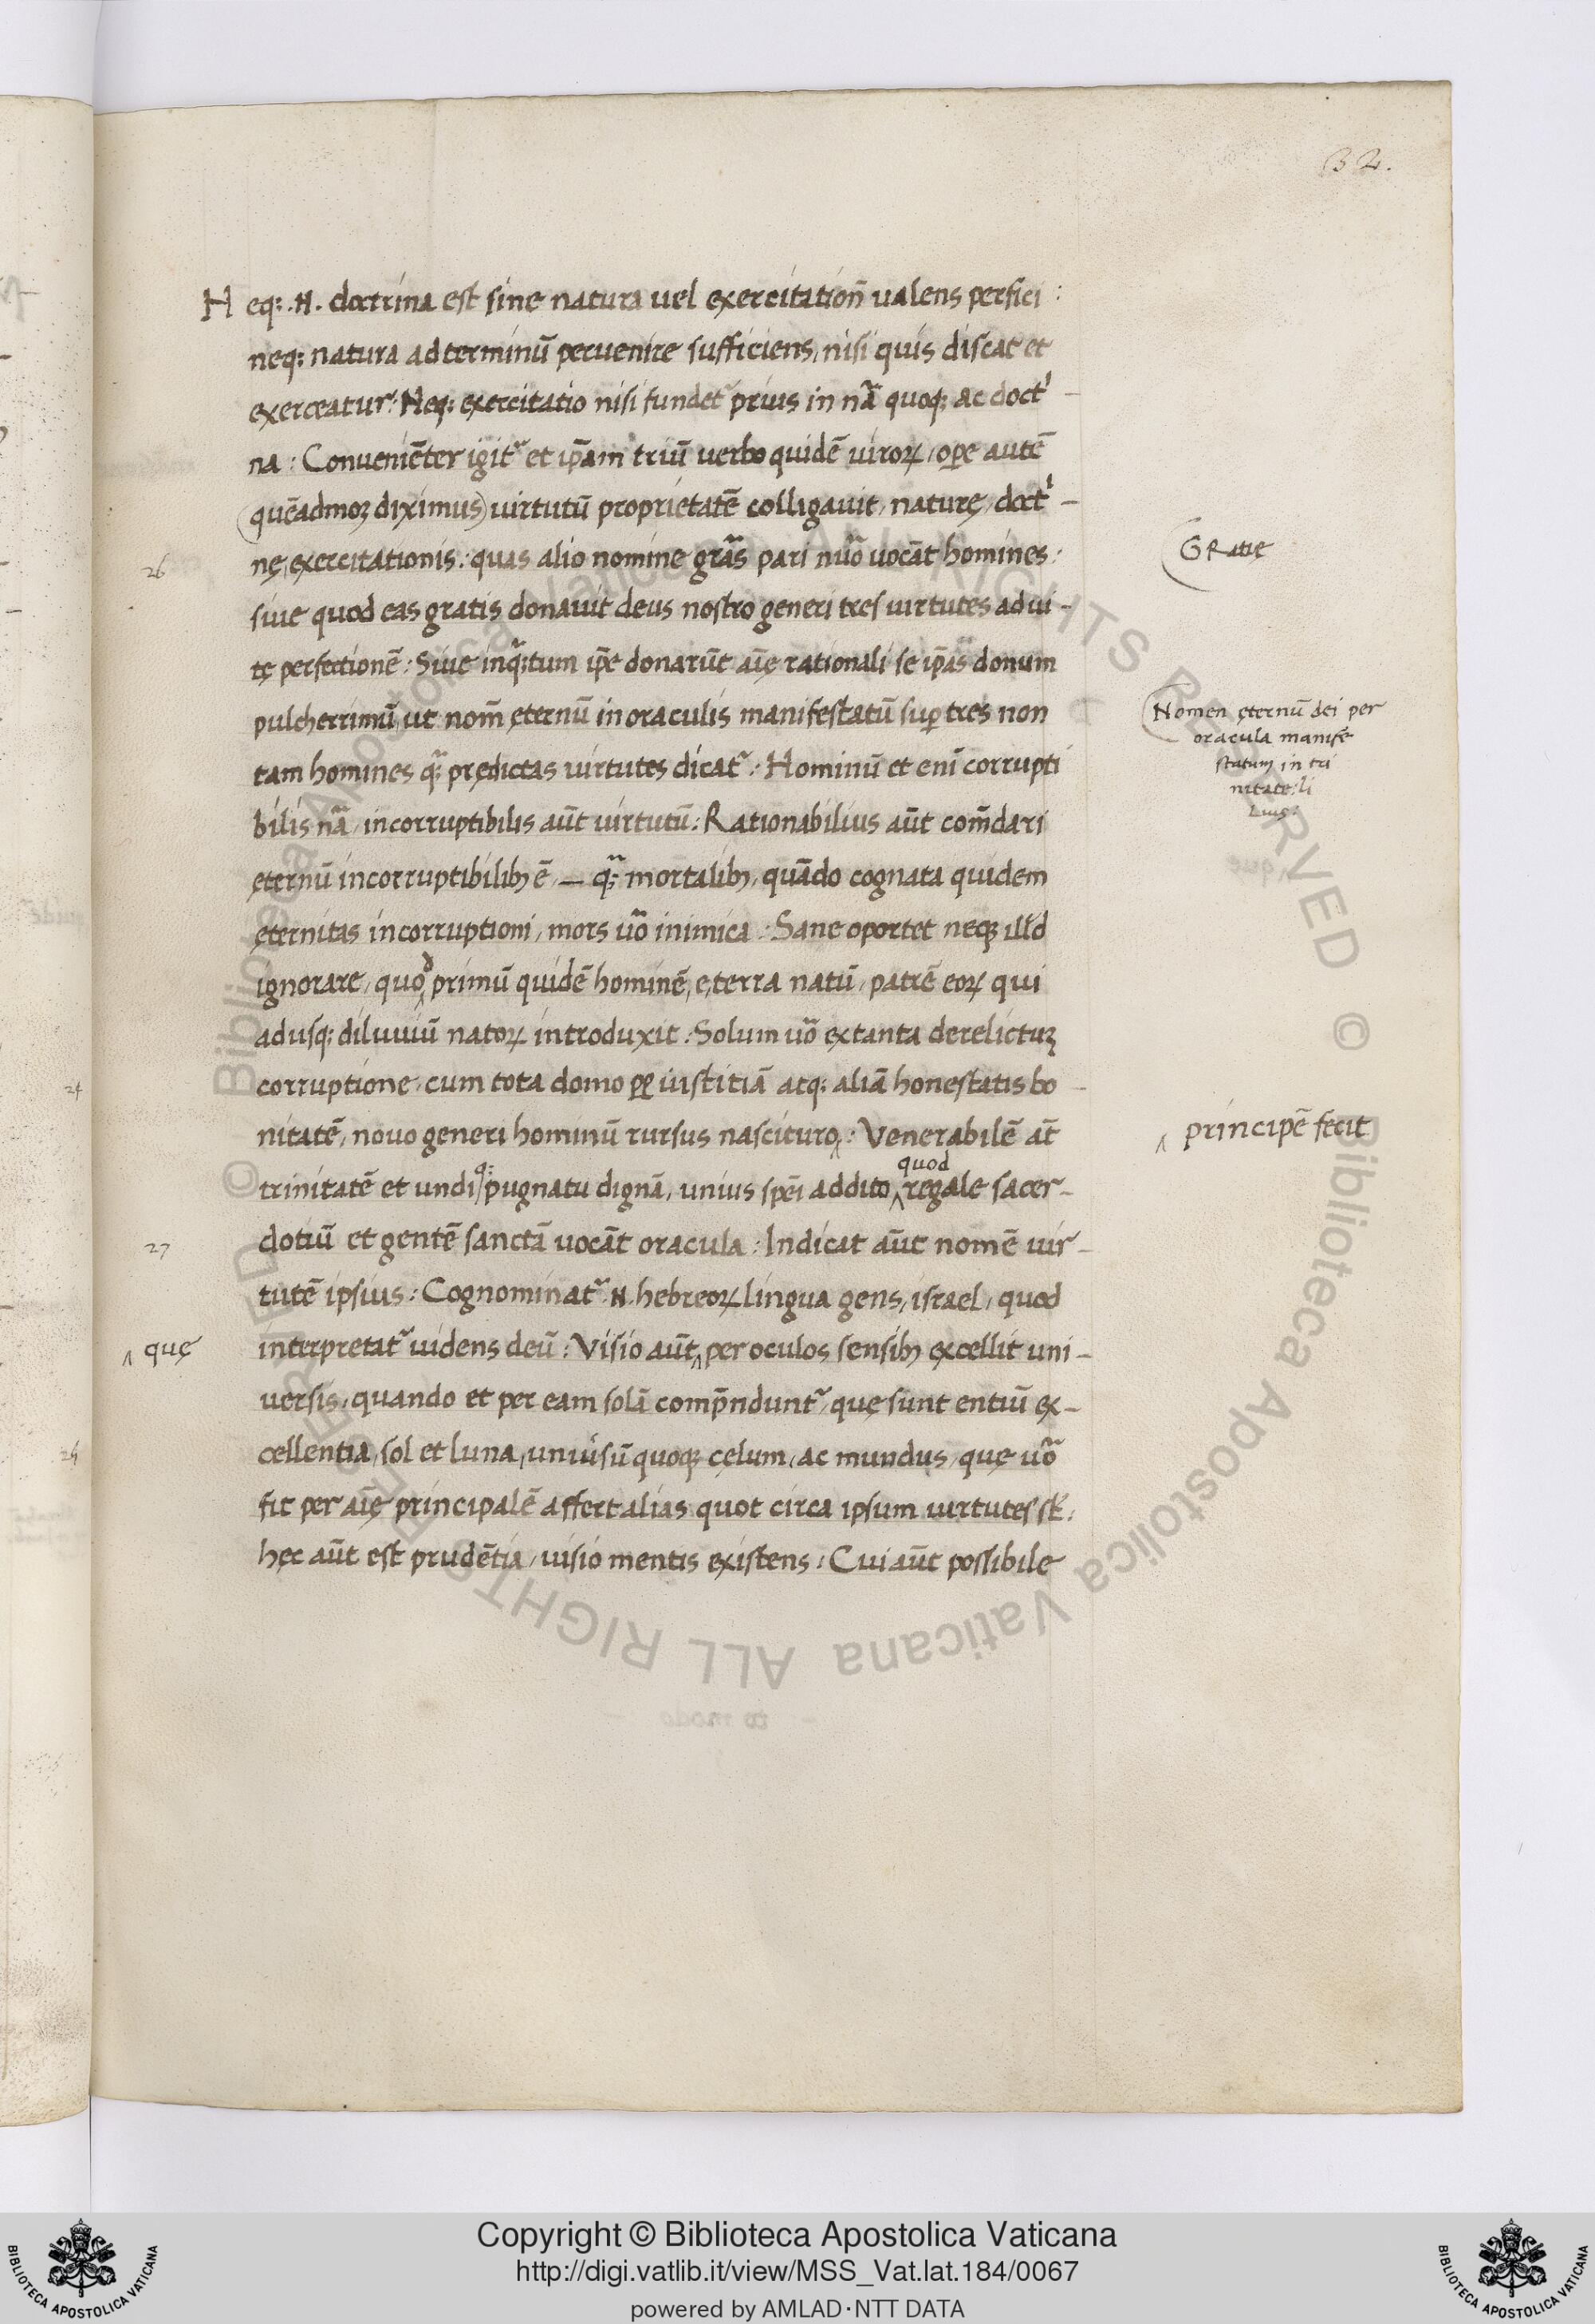 32.
Neq: .N. doctrina est sine natura uel exercitation̄ ualens perfici :
neq: natura ad terminū peruenire sufficiens, nisi quis discat et
exerceatur: Neq: exercitatio nisi fundet᷑ prius in nā quoq: ac doctⁱ -
na : Conueniēter igit᷑ et ip̄am triū uerbo quidē uiroꝝ, op̄e autē
(quēadmoꝫ diximus) uirtutū proprietatē colligauit, naturę, doctⁱ -
nę, exercitationis : quas alio nomine grās pari nūo uocāt homines :
siue quod eas gratis donauit deus nostro generi tres uirtutes ad ui -
tę perfectionē : Siue inq̄tum ip̄e donarūt aīę rationali se ip̄as donum
pulcherrimū, ut nom̄ ęternū in oraculis manifestatū suꝑ tres non
tam homines q̄ꝫ prędictas uirtutes dicat᷑ : Hominū et eni᷑ corrupti
bilis nā, incorruptibilis aūt uirtutū : Rationabilius aūt com̄dari
ęternū incorruptibilibꝫ ē, — q̄ꝫ mortalibꝫ, quādo cognata quidem
ęternitas incorruptioni, mors uō inimica : Sane oportet neqꝫ illd̄
ignorare, quod primū quidē hominē, e, terra natū, patrē eoꝝ qui
adusq: diluuiū natoꝝ introduxit : Solum uō ex tanta derelictuꝫ
corruptione, cum tota domo ꝓp iustitiā atq: aliā honestatis bo -
nitatē, nouo generi hominū rursus nascituro ‸ : Venerabilē at̄
quod
trinitatē et undiq: pugnatu dignā, unius spēi addito ‸ regale sacer -
dotiū et gentē sanctā uocāt oracula : Indicat aūt nomē uir -
tutē ipsius : Cognominat᷑ .N. hebreoꝝ lingua gens, israel, quod
interpretat᷑ uidens deū : Visio aūt ‸ per oculos sensibꝫ excellit uni -
uersis, quando et per eam solā comp̄ndunt᷑, quę sunt entiū ex -
cellentia, sol et luna, uniūsū quoqꝫ cęlum, ac mundus, quę uō
fit per aīę principalē affert alias quot circa ipsum uirtutes st̄ :
hęc aūt est prudētia, uisio mentis existens : Cui aūt possibile
26
27
‸ quę
24
25
GRatię
Nomen ęternū dei per
oracula manife
statum in tri
nitate:
‸ principē fecit
© Biblioteca Apostolica Vaticana ALL RIGHTS RESERVED
Copyright © Biblioteca Apostolica Vaticana
http://digi.vatlib.it/view/MSS_Vat.lat.184/0067
powered by AMLAD·NTT DATA
BIBLIOTECA APOSTOLICA VATICANA
BIBLIOTECA APOSTOLICA VATICANA